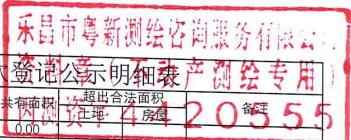 乐昌市粤新测绘咨询服务有限公
资料章（不动产测绘专用）
次登记公示明细表
共有面积
超出合法面积
土地
房屋
备注
丙测资字4420555
0.00